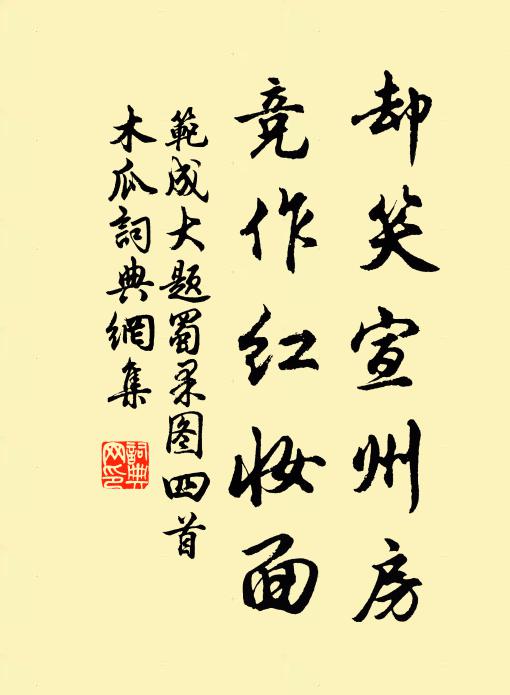 却笑宣州房
竞作红妆面
範成大题蜀果图四首
木瓜詞典網集
詞典网印